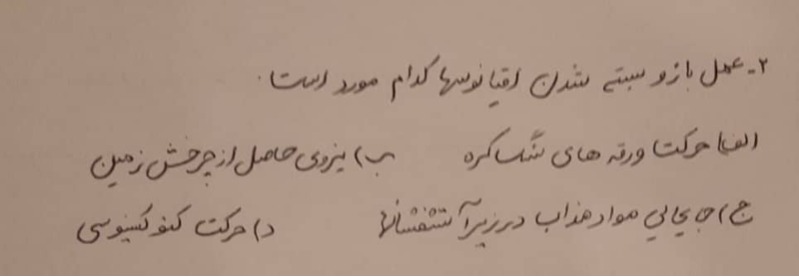 ۲- عمل باز و بسته شدن اقیانوسها کدام مورد است.
الف) حرکت ورقه های سنگ کره ب) نیروی حاصل از چرخش زمین
ج) جابجایی مواد مذاب در زیر آتشفشانها د) حرکت کنوکسیوسی